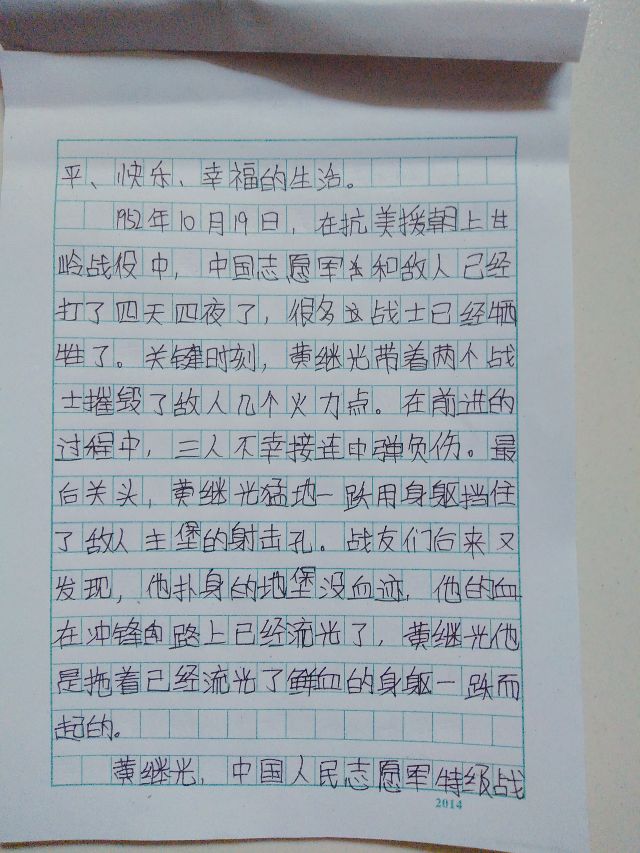 平、快乐、幸福的生活。
1952年10月19日，在抗美援朝上甘
岭战役中，中国志愿军和敌人已经
打了四天四夜了，很多战士已经牺
牲了。关键时刻，黄继光带着两个战
士摧毁了敌人几个火力点。在前进的
过程中，三人不幸接连中弹负伤。最
后关头，黄继光猛地一跃用身躯挡住
了敌人主堡的射击孔。战友们后来又
发现，他扑身的地堡没血迹，他的血
在冲锋的路上已经流光了，黄继光他
是拖着已经流光了鲜血的身躯一跃而
起的。
黄继光，中国人民志愿军特级战
2014